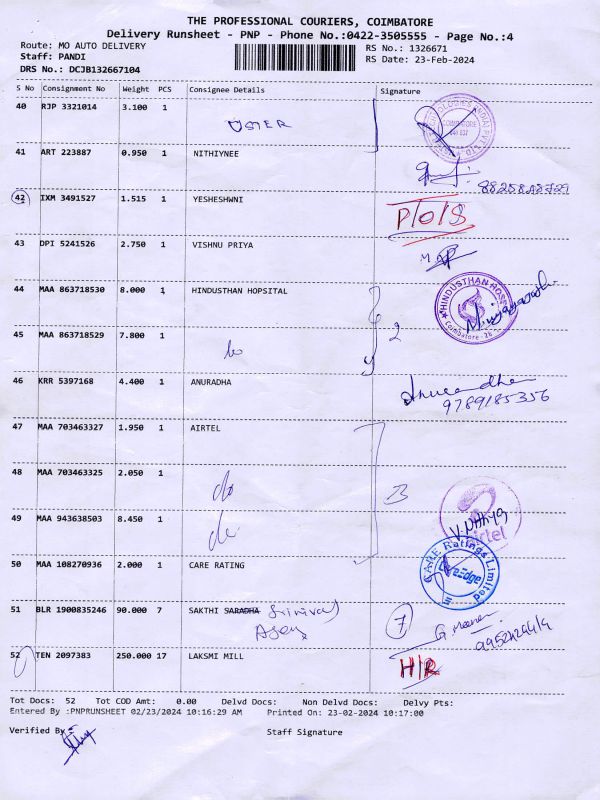 THE PROFESSIONAL COURIERS, COIMBATORE
Delivery Runsheet - PNP - Phone No.:0422-3505555 - Page No.:4
Route: MO AUTO DELIVERY RS No.: 1326671
Staff: PANDI RS Date: 23-Feb-2024
DRS No.: DCJB132667104
S No Consignment No Weight PCS Consignee Details Signature
40 RJP 3321014 3.100 1
USTER
41 ART 223887 0.950 1 NITHIYNEE
42 IXM 3491527 1.515 1 YESHESHWNI
P/O/S
43 DPI 5241526 2.750 1 VISHNU PRIYA
44 MAA 863718530 8.000 1 HINDUSTHAN HOPSITAL
HINDUSTHAN
Coimbatore-28
45 MAA 863718529 7.800 1 2
46 KRR 5397168 4.400 1 ANURADHA Anuradha
9789185356
47 MAA 703463327 1.950 1 AIRTEL
48 MAA 703463325 2.050 1 do 3
49 MAA 943638503 8.450 1 do V.Nithya
airtel
50 MAA 108270936 2.000 1 CARE RATING
CARE Ratings Limited
CareEdge
51 BLR 1900835246 90.000 7 SAKTHI SARADHA Srinivas 7
52 TEN 2097383 250.000 17 LAKSMI MILL H/R
Tot Docs: 52 Tot COD Amt: 0.00 Delvd Docs: Non Delvd Docs: Delvy Pts:
Entered By :PNPRUNSHEET 02/23/2024 10:16:29 AM Printed On: 23-02-2024 10:17:00
Verified By Staff Signature